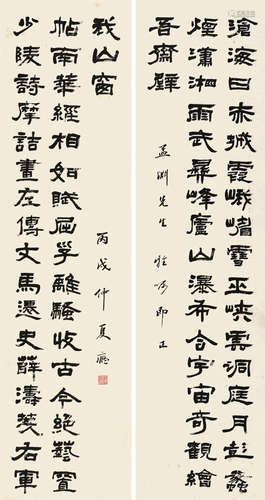 滄海日赤城霞峨嵋雪巫峽雲洞庭月彭蠡
煙瀟湘雨武彝峰廬山瀑布合宇宙奇觀繪
吾齋壁
孟淵先生 雅屬 即正
少陵詩摩詰畫左傳文馬遷史薛濤箋右軍
帖南華經相如賦屈子離騷收古今絕藝置
我山窗
丙戌仲夏